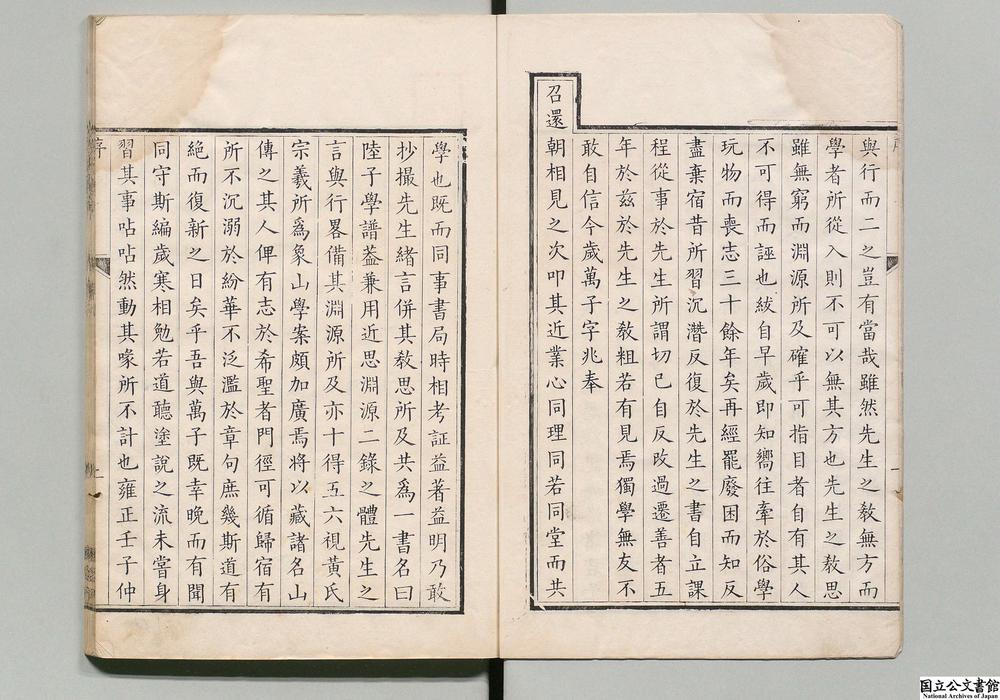 與行而二之豈有當哉雖然先生之教無方而
學者所從入則不可以無其方也先生之教思
雖無窮而淵源所及確乎可指目者自有其人
不可得而誣也紱自早歲即知嚮往牽於俗學
玩物而喪志三十餘年矣再經罷廢困而知反
盡棄宿昔所習沉潛反復於先生之書自立課
程從事於先生所謂切己自反改過遷善者五
年於玆於先生之教粗若有見焉獨學無友不
敢自信今歲萬子字兆奉
召還
朝相見之次叩其近業心同理同若同堂而共
學也既而同事書局時相考証益著益明乃敢
抄撮先生緒言併其教思所及共爲一書名曰
陸子學譜葢兼用近思淵源二錄之體先生之
言與行畧備其淵源所及亦十得五六視黃氏
宗羲所爲象山學案頗加廣焉將以藏諸名山
傳之其人俾有志於希聖者門徑可循歸宿有
所不沉溺於紛華不泛濫於章句庶幾斯道有
絶而復新之日矣乎吾與萬子既幸晚而有聞
同守斯編歲寒相勉若道聽塗說之流未嘗身
習其事呫呫然動其喙所不計也雍正壬子仲
序
国立公文書館
National Archives of Japan